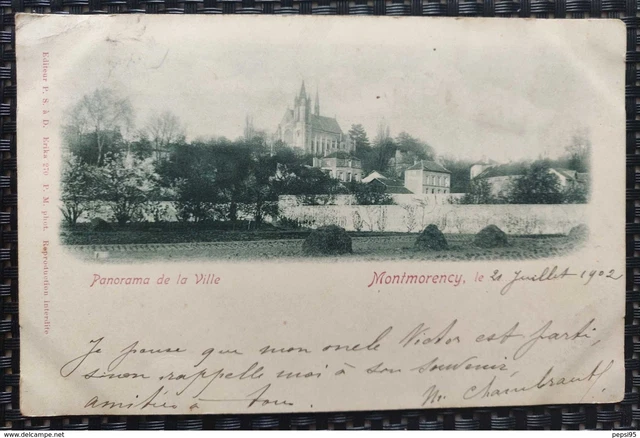 Editeur P. S. à D. Erika 270 F. M. phot. Reproduction interdite
Panorama de la Ville
Montmorency, le 21 Juillet 1902
Je pense que mon oncle Victor est parti,
sinon rappelle moi à son souvenir,
amitiés à tous. M. Chambrault
pepsi95